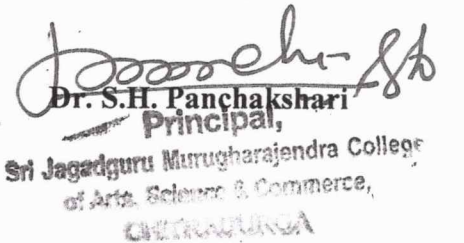 Dr. S.H. Panchakshari
Principal,
Sri Jagadguru Murugharajendra College
of Arts, Science & Commerce,
CHITRADURGA